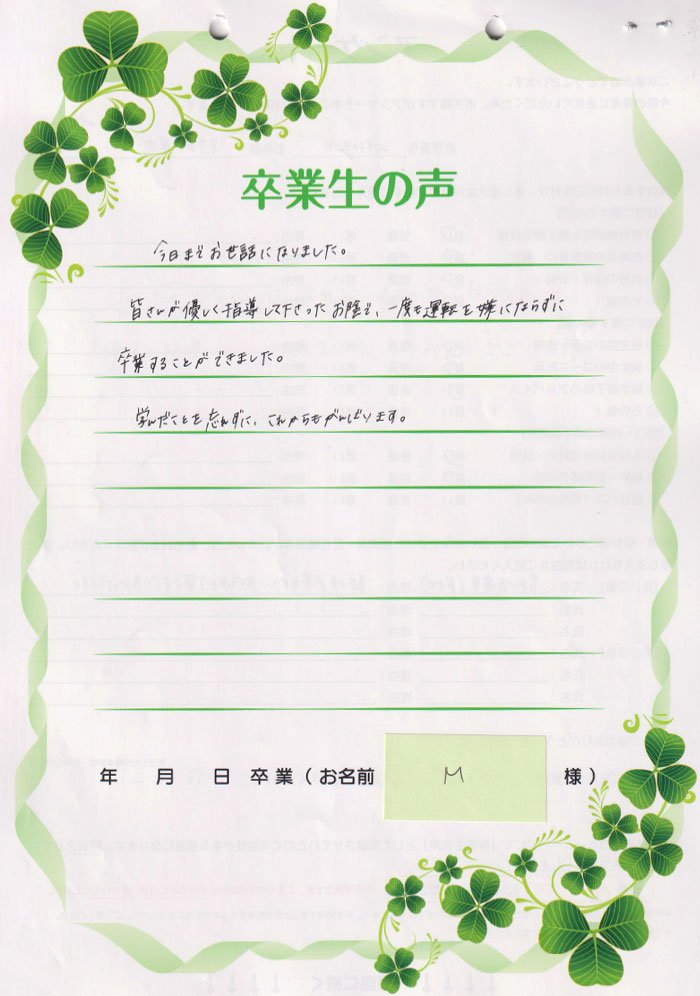 卒業生の声
今日までお世話になりました。
皆さんが優しく指導して下さったお陰で、一度も運転を嫌にならずに
卒業することができました。
学んだことを忘れずに、これからもがんばります。
年 月 日 卒業（お名前 M 様）